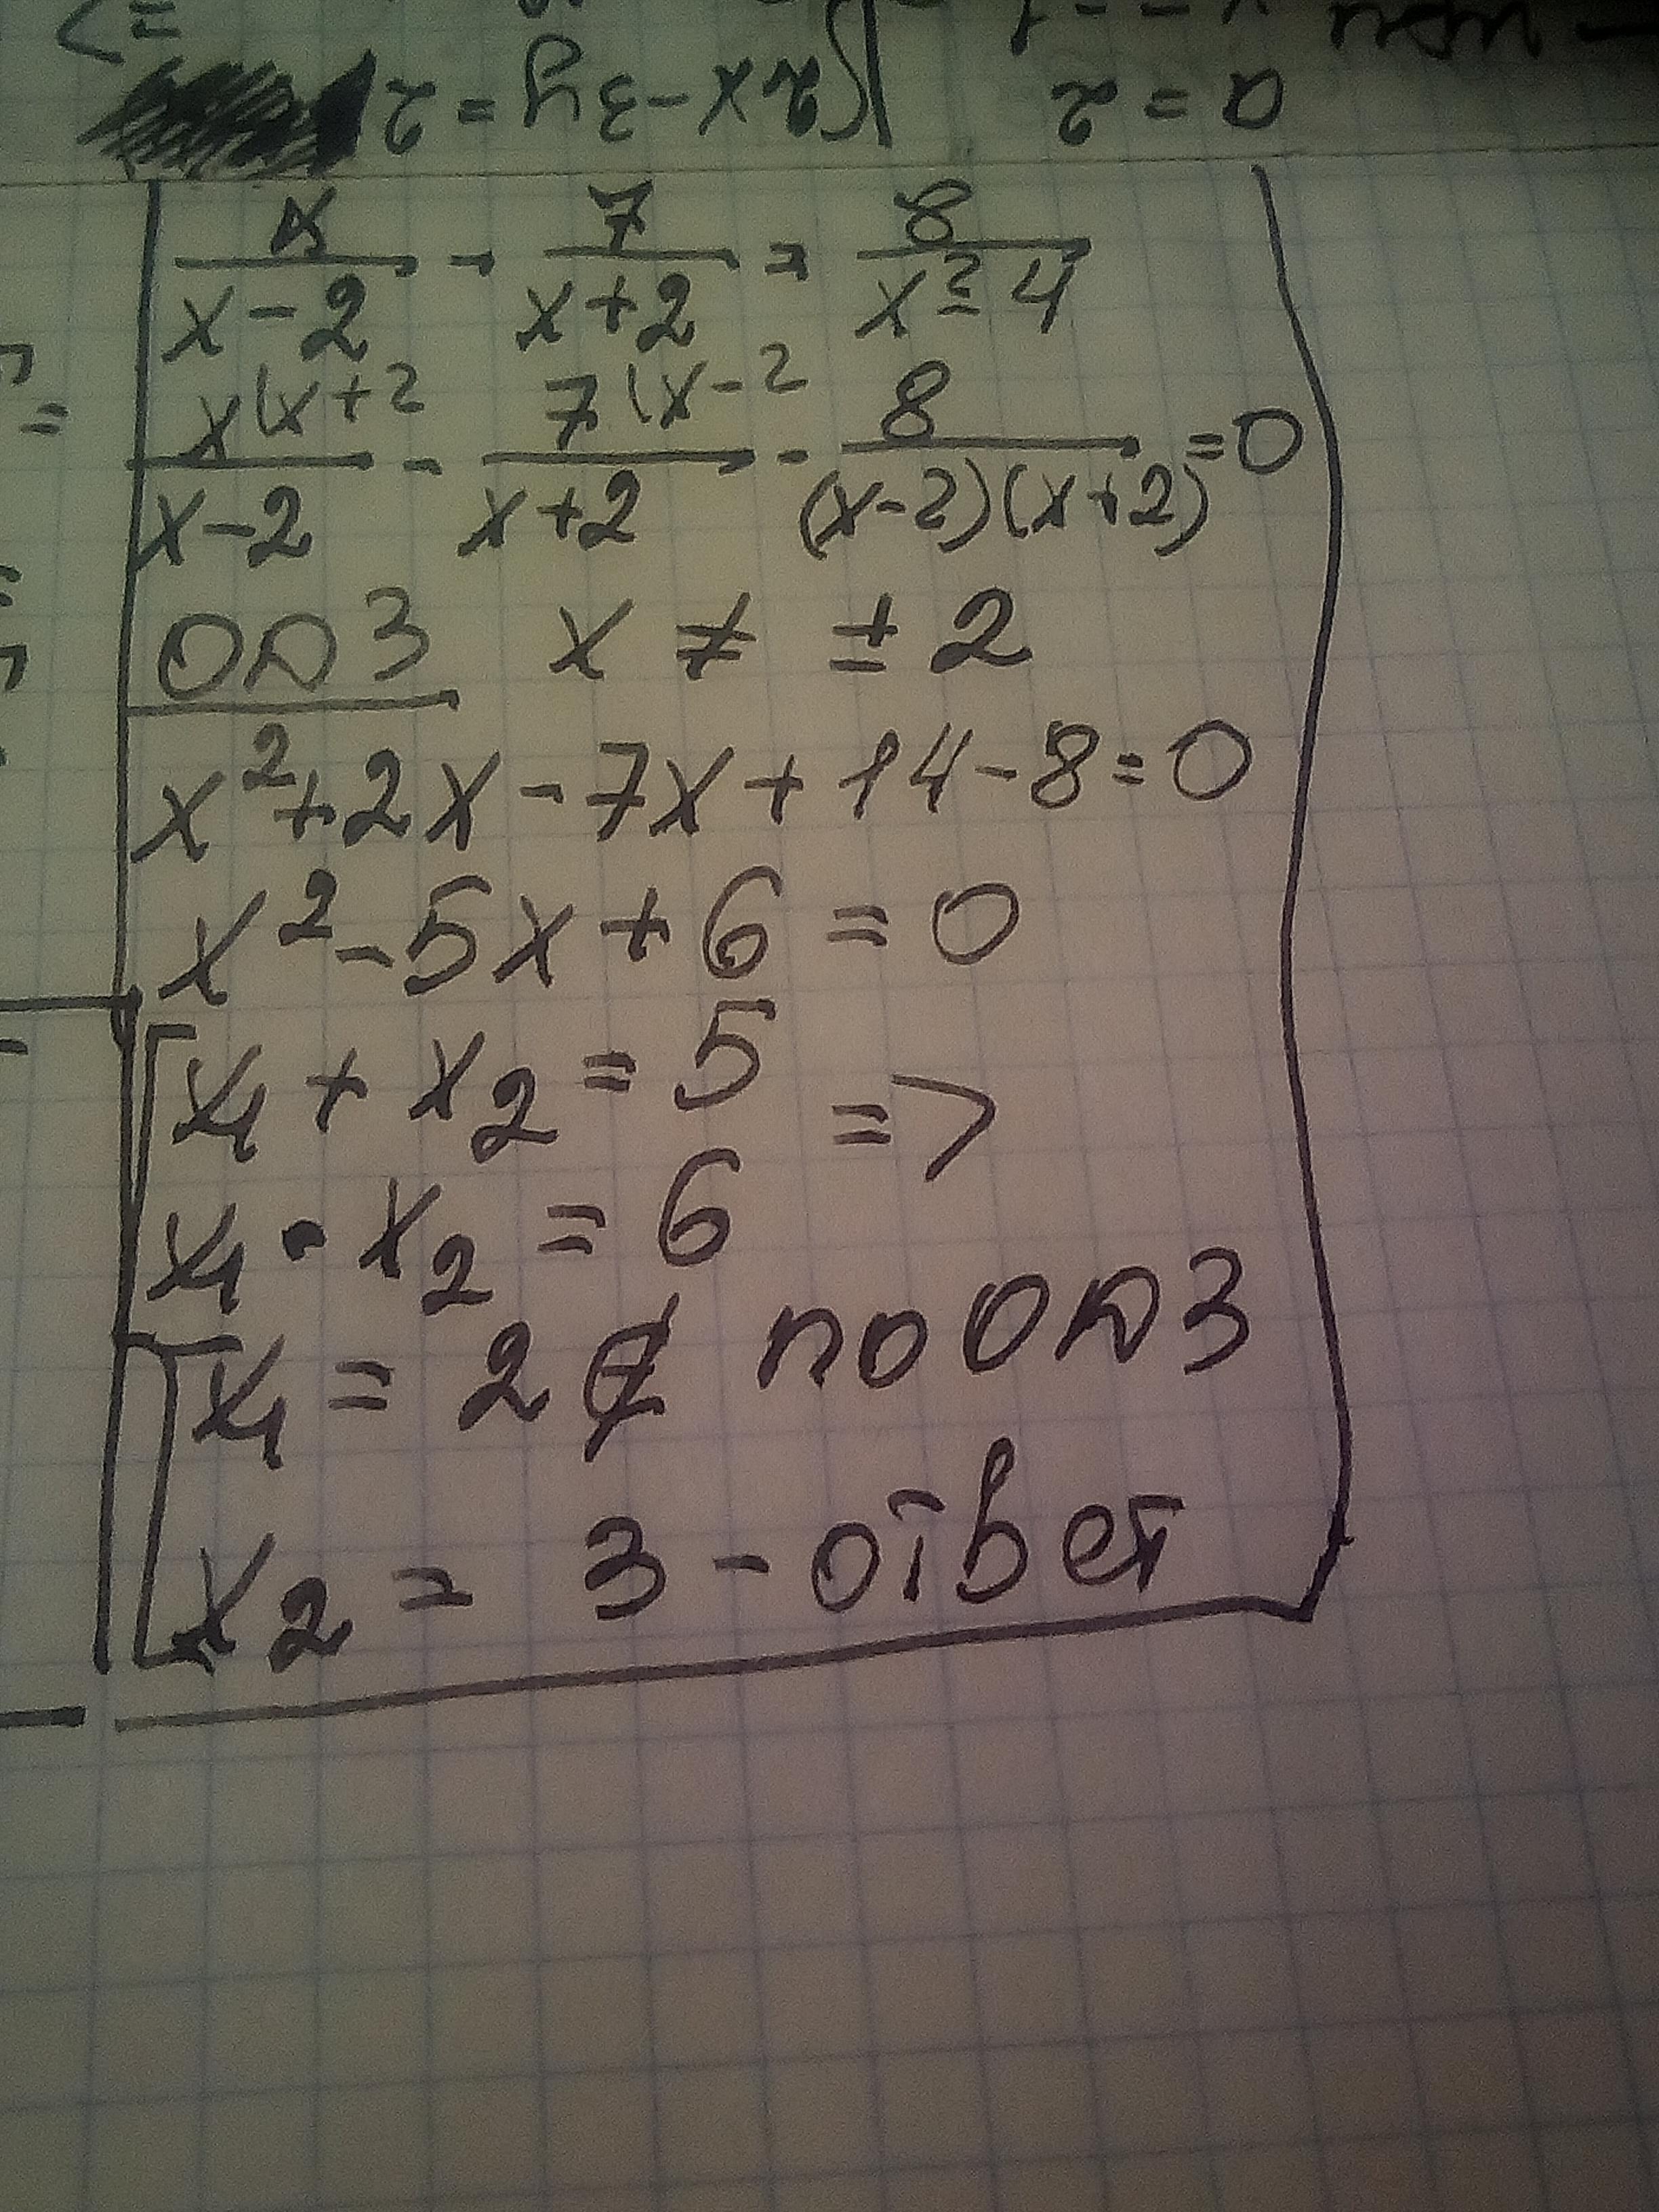 2x - 3y = 2
a = 2
x/(x-2) - 7/(x+2) = 8/(x²-4)
x(x+2/(x-2) - 7(x-2/(x+2) - 8/((x-2)(x+2)) = 0
ОДЗ x ≠ ± 2
x² + 2x - 7x + 14 - 8 = 0
x² - 5x + 6 = 0
[x₁ + x₂ = 5
=>
x₁ • x₂ = 6
[x₁ = 2 ∉ по ОДЗ
x₂ = 3 - ответ